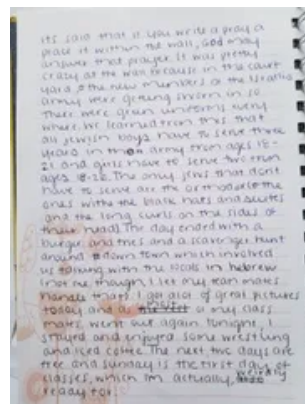 its said that if you write a pray a
place it within the wall, God may
answer that prayer. It was pretty
crazy at the wall because in the court
yard the new members of the Israeli
army were getting sworn in so
there were green uniforms every
where. We learned from this that
all jewish boys have to serve three
years in the army from ages 18-
21 and girls have to serve two from
ages 18-20. The only jews that don't
have to serve are the orthodox (the
ones withe the black hats and suites
and the long curls on the sides of
their head) The day ended with a
burger and fries and a scavenger hunt
around down town which involved
us talking with the locals in hebrew
(not me though, I let my team mates
handle that). I got alot of great pictures
today and a most of my class
mates went out again tonight, I
stayed and enjoyed some wrestling
and iced coffee. The next two days are
free and sunday is the first day of
classes, which im actually, weirdly
ready for.